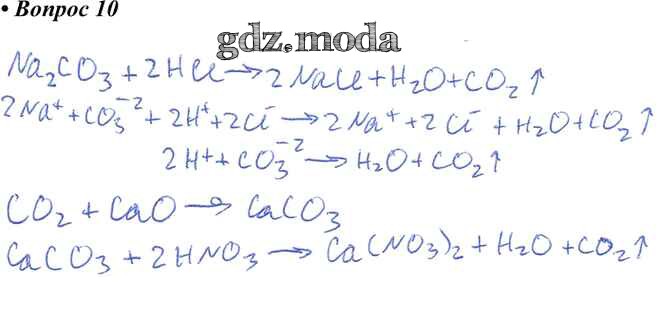 • Вопрос 10
gdz.moda
Na₂CO₃ + 2HCl → 2NaCl + H₂O + CO₂↑
2Na⁺ + CO₃⁻² + 2H⁺ + 2Cl⁻ → 2Na⁺ + 2Cl⁻ + H₂O + CO₂↑
2H⁺ + CO₃⁻² → H₂O + CO₂↑
CO₂ + CaO → CaCO₃
CaCO₃ + 2HNO₃ → Ca(NO₃)₂ + H₂O + CO₂↑